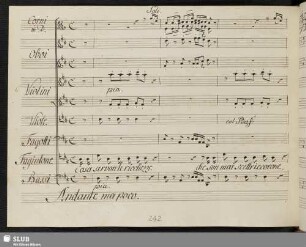 Corni
Soli
in D.
Oboi
Violini
pia.
Viole
col Basso
Fagotti
Cosa servon le ricchezze, che son mai scettri e corone,
Bassi
pia.
Andante ma poco.
242
SLUB